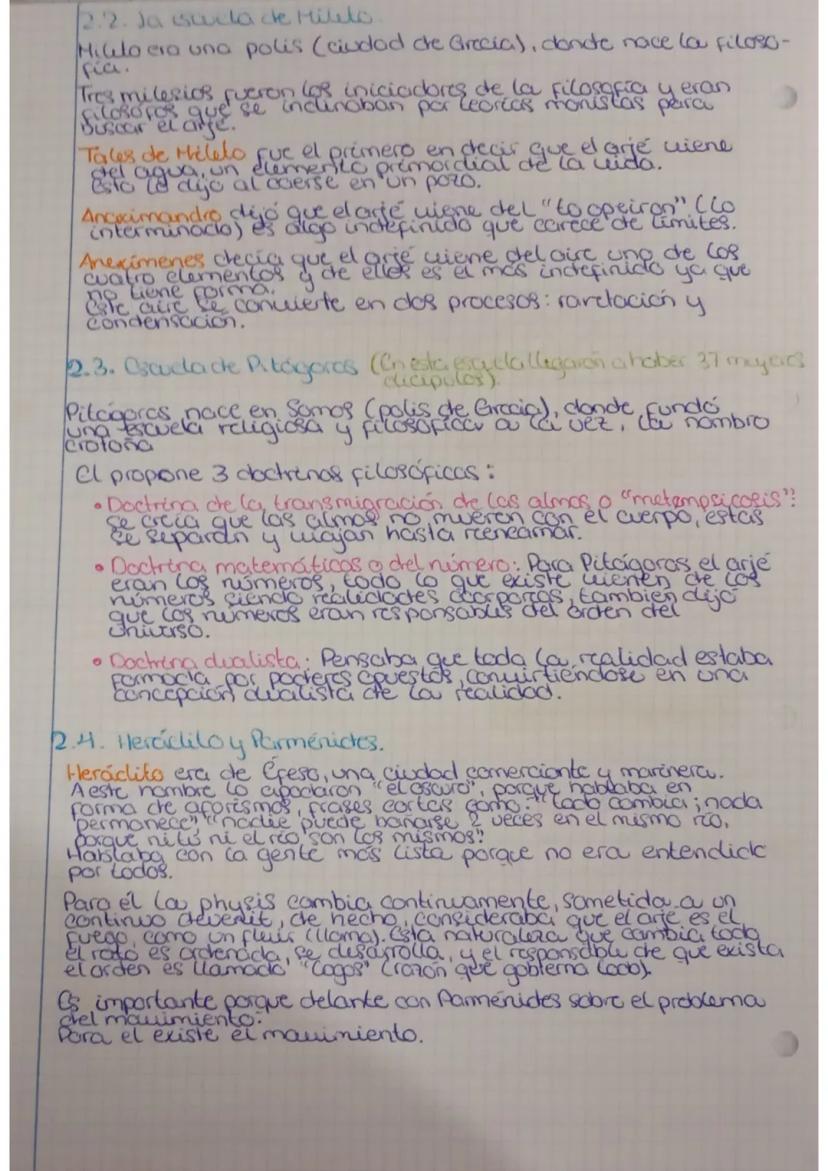 2.2. La escuela de Mileto.
Mileto era una polis (ciudad de Grecia), donde nace la filoso-
fía.
Tres milesios fueron los iniciadores de la filosofía y eran
filósofos que se inclinaban por teorías monistas para
buscar el arjé.
Tales de Mileto fue el primero en decir que el arjé viene
del agua, un elemento primordial de la vida.
Esto lo dijo al caerse en un pozo.
Anaximandro dijo que el arjé viene del "to apeiron" (lo
interminado) es algo indefinido que carece de límites.
Anaxímenes decía que el arjé viene del aire uno de los
cuatro elementos y de ellos es el más indefinido ya que
no tiene forma.
Este aire se convierte en dos procesos: rarefacción y
condensación.
2.3. Escuela de Pitágoras (En esta escuela llegaron a haber 37 mujeres
dicipulas).
Pitágoras nace en Samos (polis de Grecia), donde fundó
una escuela religiosa y filosófica a la vez, la nombro
crotona
El propone 3 doctrinas filosóficas:
• Doctrina de la transmigración de las almas o "metempsicosis":
se creía que las almas no mueren con el cuerpo, estas
se separan y viajan hasta reencarnar.
• Doctrina matemáticas o del número: Para Pitágoras el arjé
eran los números, todo lo que existe vienen de los
números siendo realidades, también dijo
que los números eran responsables del orden del
universo.
• Doctrina dualista: Pensaba que toda la realidad estaba
formada por poderes opuestos, convirtiéndose en una
concepción dualista de la realidad.
2.4. Heráclito y Parménides.
Heráclito era de Éfeso, una ciudad comerciante y marinera.
A este hombre lo apodaron "el oscuro", porque hablaba en
forma de aforismos, frases cortas como: "todo cambia; nada
permanece" "nadie puede bañarse 2 veces en el mismo río,
porque ni tú ni el río son los mismos".
Hablaba con la gente más lista porque no era entendido
por todos.
Para él la physis cambia continuamente, sometida a un
continuo devenir, de hecho, consideraba que el arje es el
fuego, como un fluir (llama). Esta naturaleza que cambia todo
el rato es ordenada, se desarrolla, y el responsable de que exista
el orden es llamado "Logos" (razón que gobierna todo).
Es importante porque delante con Parménides sobre el problema
del movimiento.
Para el existe el movimiento.